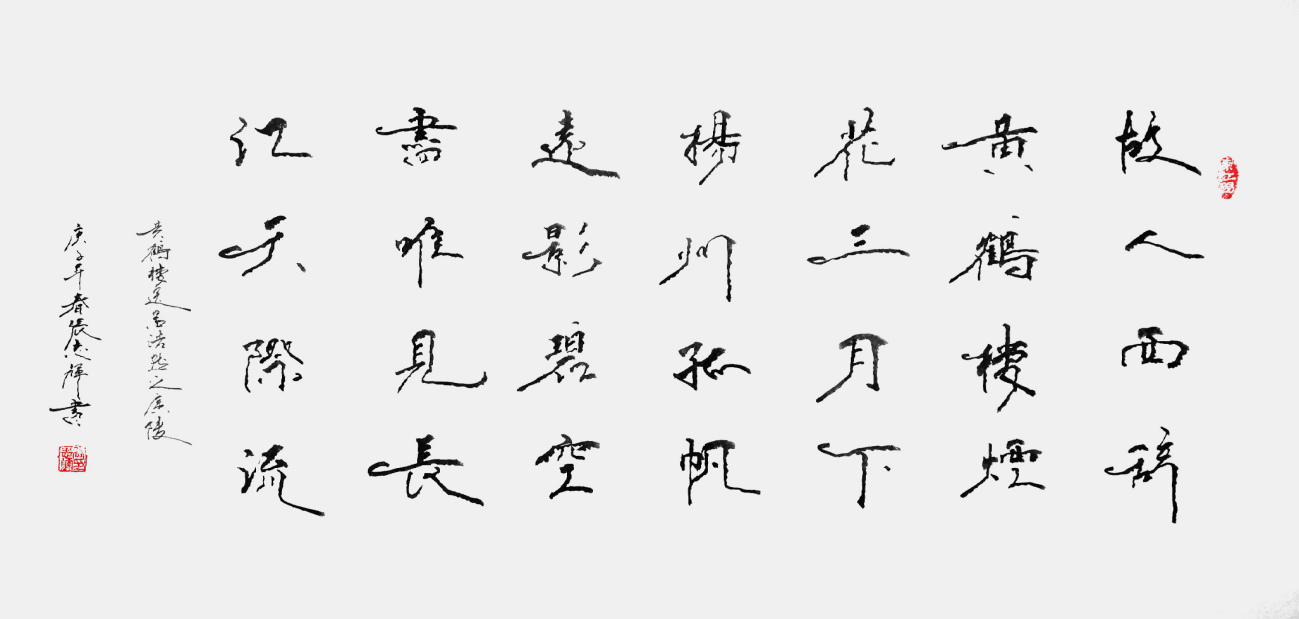 故人西辞
黄鶴樓煙
花三月下
揚州孤帆
遠影碧空
盡唯見長
江天際流
黄鶴樓送孟浩然之廣陵
庚子年春張輝書